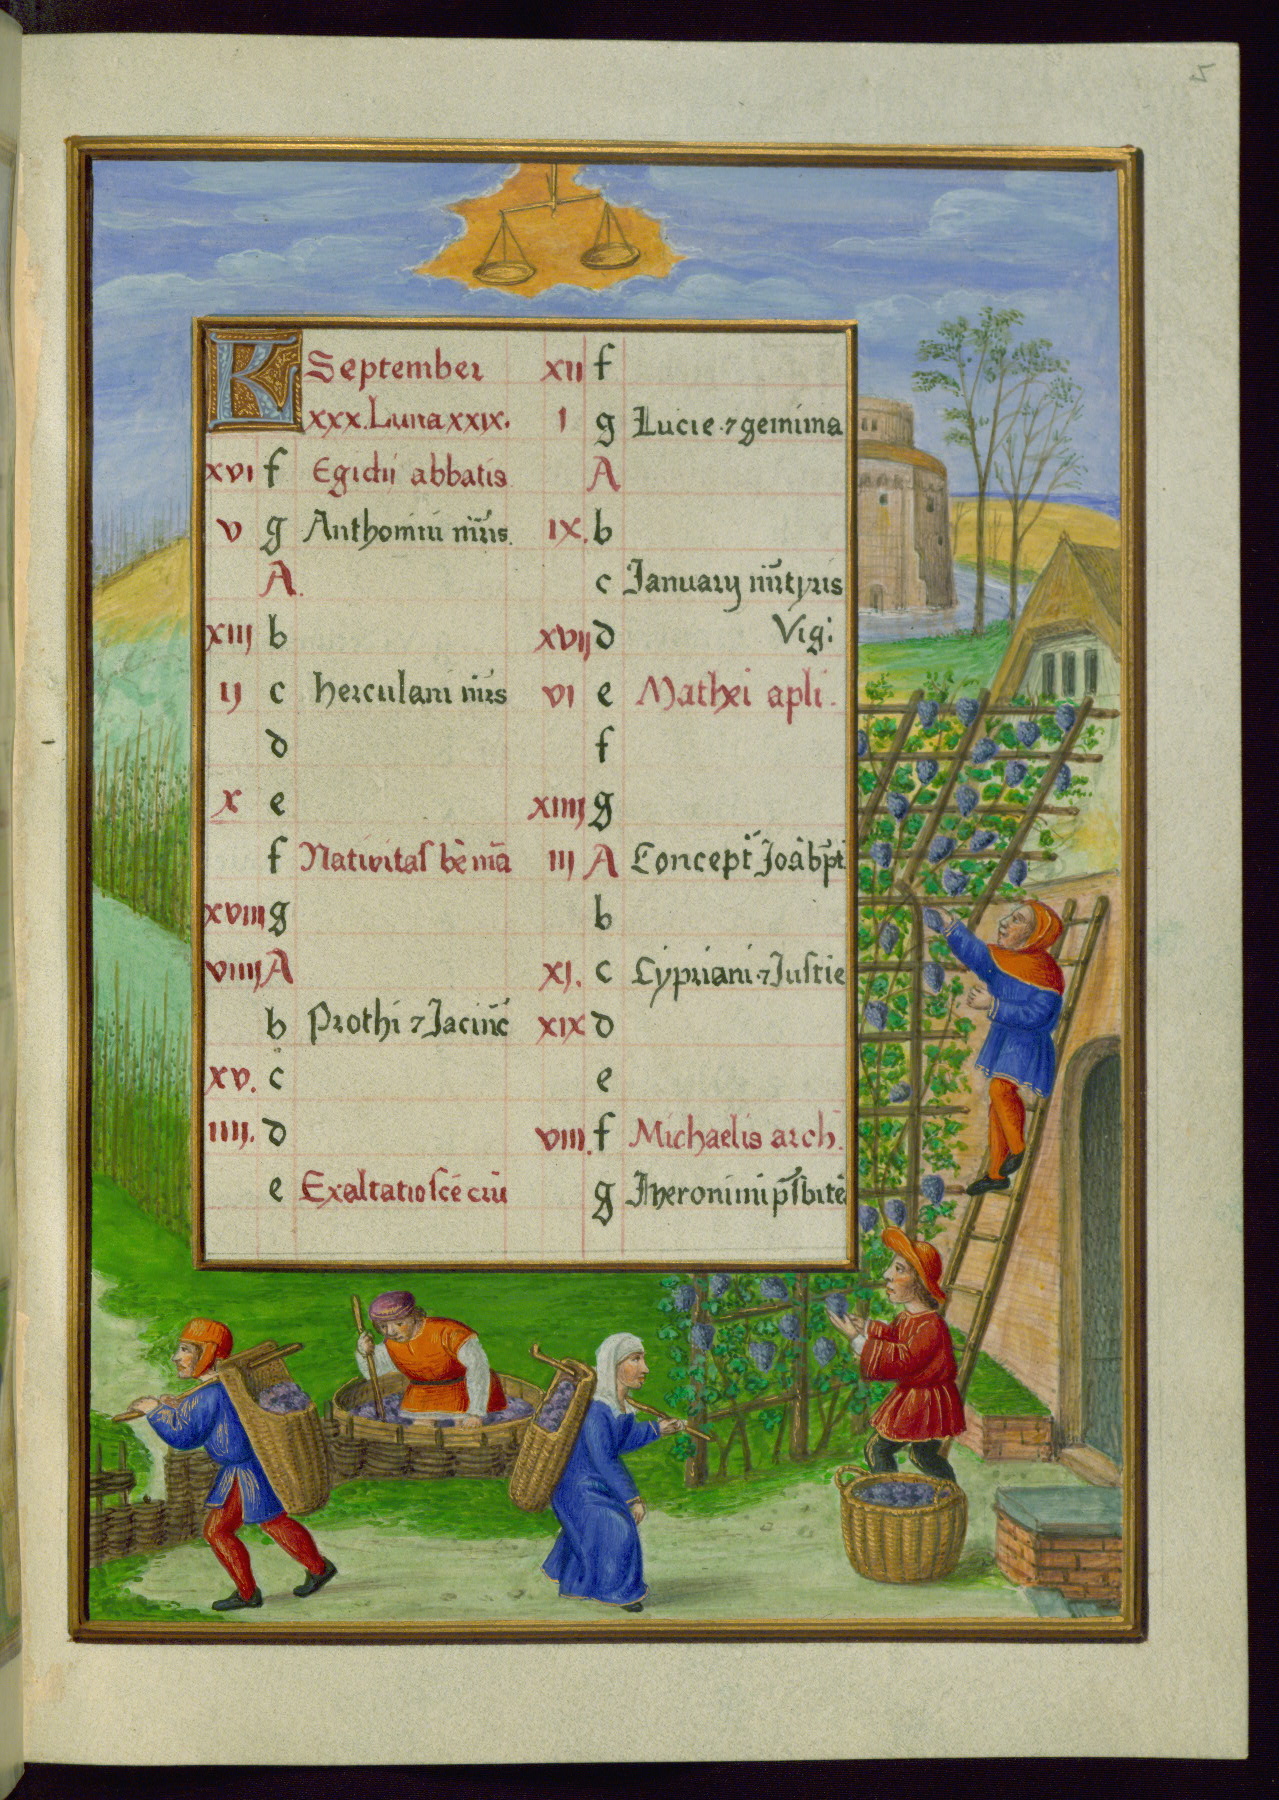 5
K September
xxx. Luna xxix.
xvi f Egidij abbatis
v g Anthonini m̄r̄is.
A.
xiij b
ij c herculani m̄r̄is
d
x e
f Natiuitas bē mā
xviiij g
viiij A
b Prothi ⁊ Jacinc̄
xv. c
iiij. d
e Exaltatio scē crū
xii f
i g Lucie ⁊ gemima
A
ix. b
c Januarij m̄rtyris
xvij d Vig:
vi e Mathei apli.
f
xiiij g
iij A Concept̄ Joā bp̄t
b
xj. c Cypriani ⁊ Justie
xix d
e
viij. f Michaelis arch.
g Iheronimi p̄sbitē